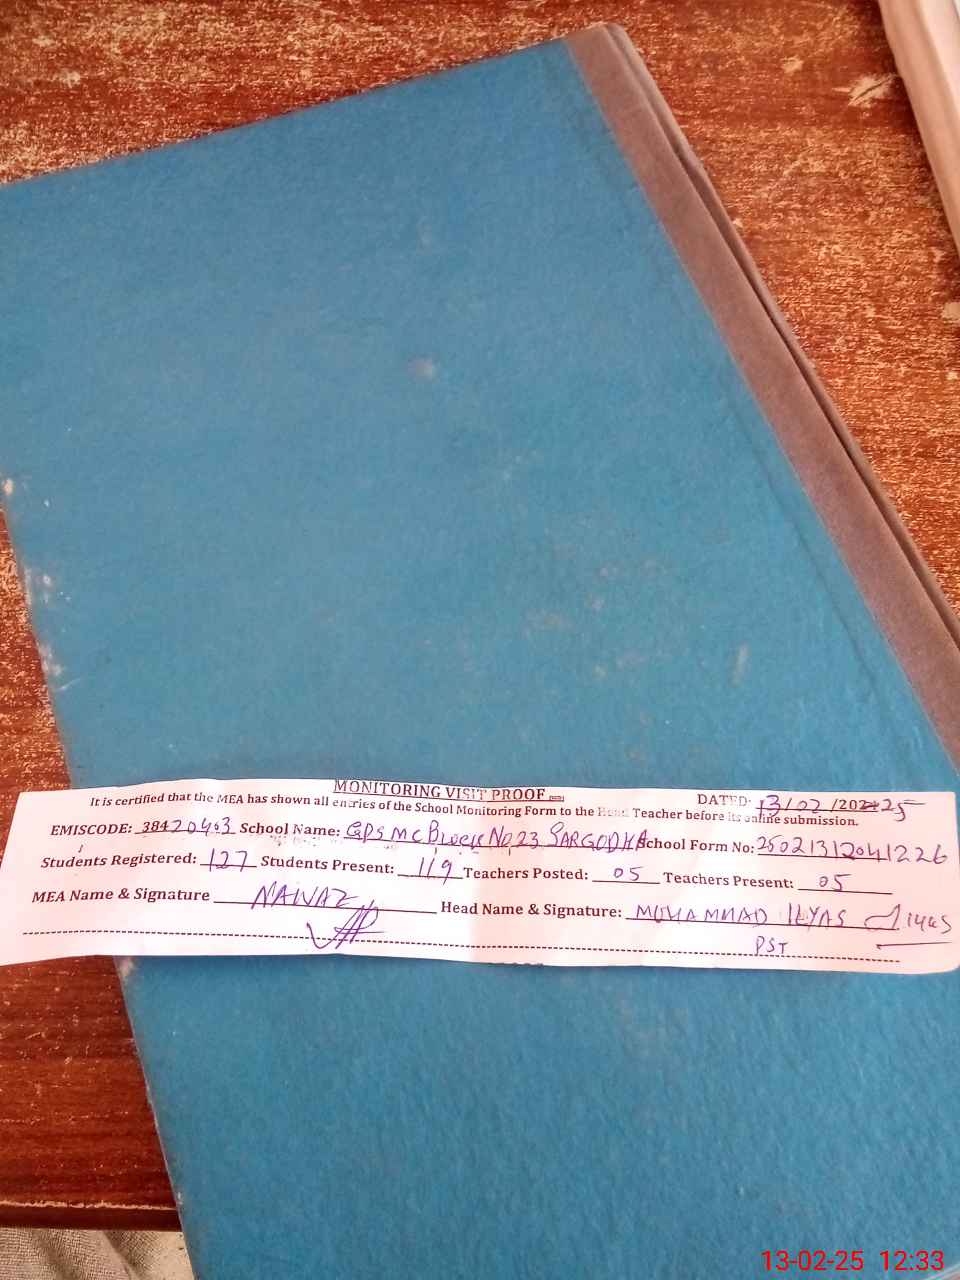 MONITORING VISIT PROOF
DATED: 13/02/2024 25
It is certified that the MEA has shown all entries of the School Monitoring Form to the Head Teacher before its online submission.
EMISCODE: 38420403 School Name: GPS MC Block No 23 SARGODHA School Form No: 2502131204 1226
Students Registered: 127 Students Present: 119 Teachers Posted: 05 Teachers Present: 05
MEA Name & Signature NAWAZ Head Name & Signature: MUHAMMAD ILYAS Ilyas
PST
13-02-25 12:33